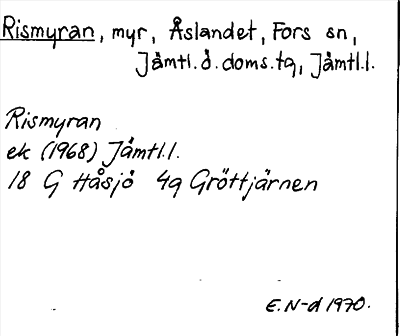 Rismyran, myr, Åslandet, Fors sn,
Jämtl. ö. doms. tg, Jämtl. l.
Rismyran
ek (1968) Jämtl. l.
18 G Håsjö 4g Gröttjärnen
E. N-d 1970.